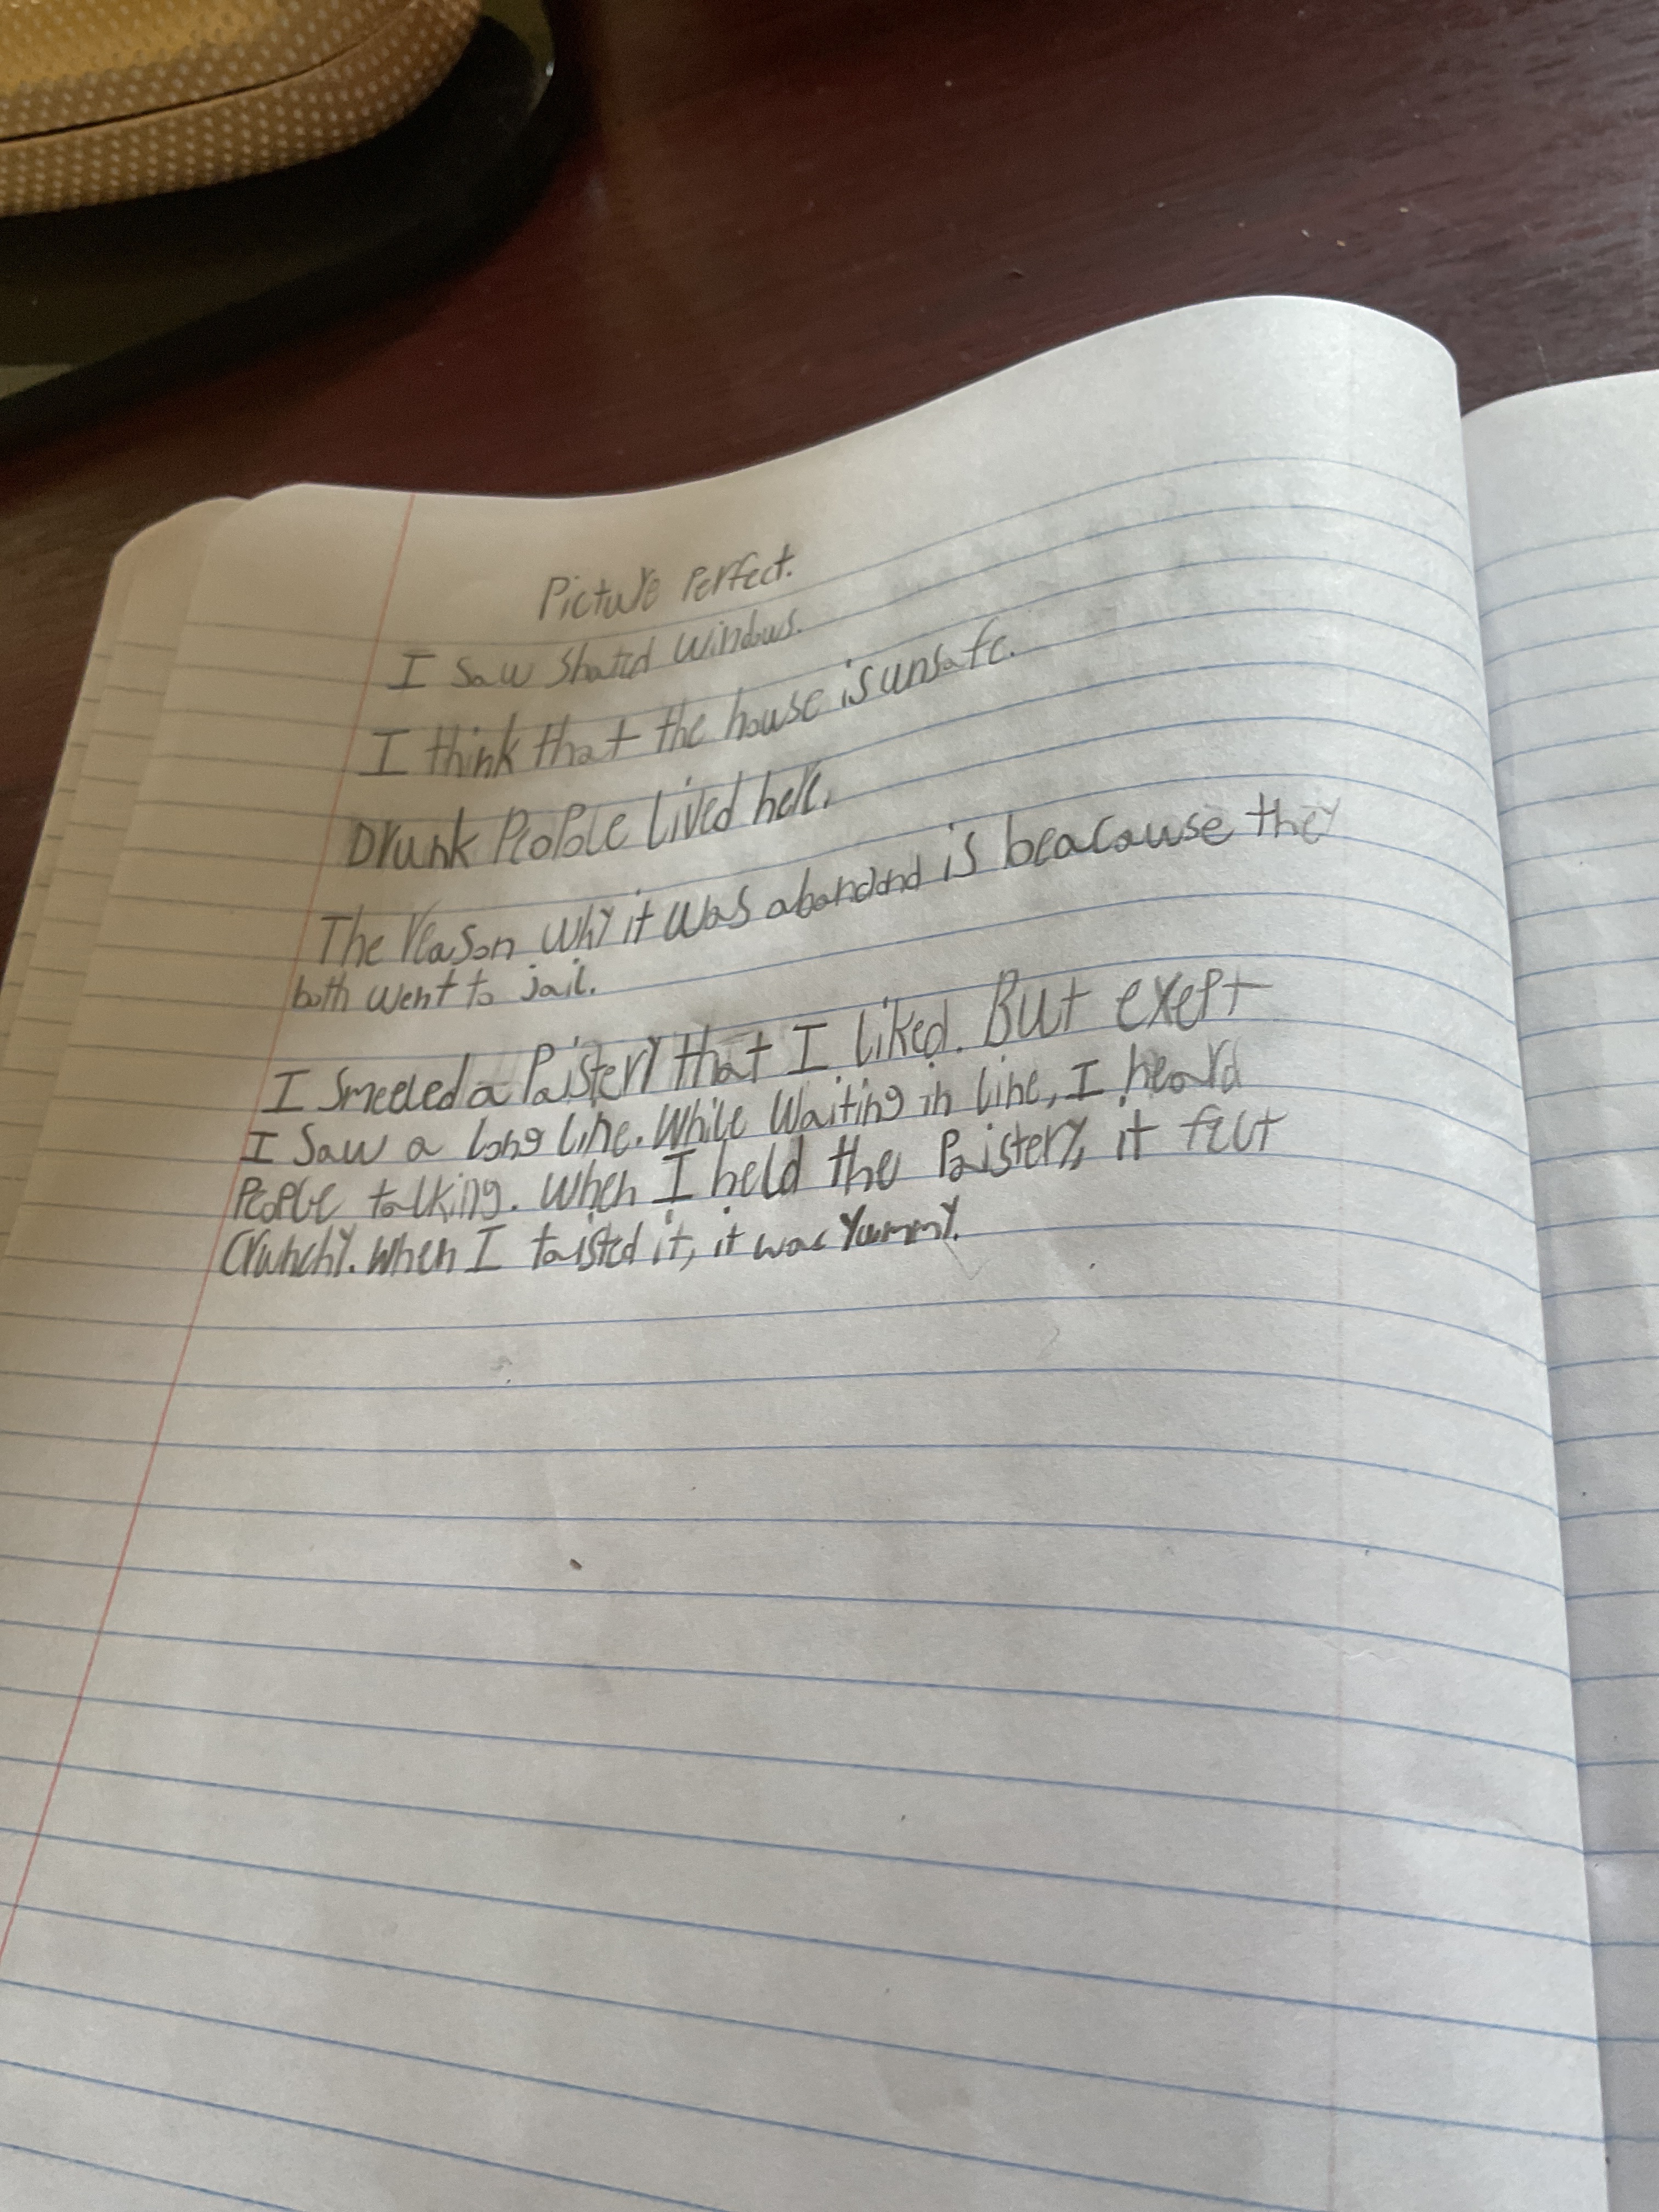 Picture Perfect.
I Saw Shated Windows.
I think that the house is unsafe.
Drunk People lived here.
The reason why it was abandand is beacause they
both went to jail.
I Smeeled a Paistery that I liked. But exept
I Saw a long line. While Waiting in line, I heard
People talking. When I held the Paistery, it felt
Crunchy. When I taisted it, it was Yummy.